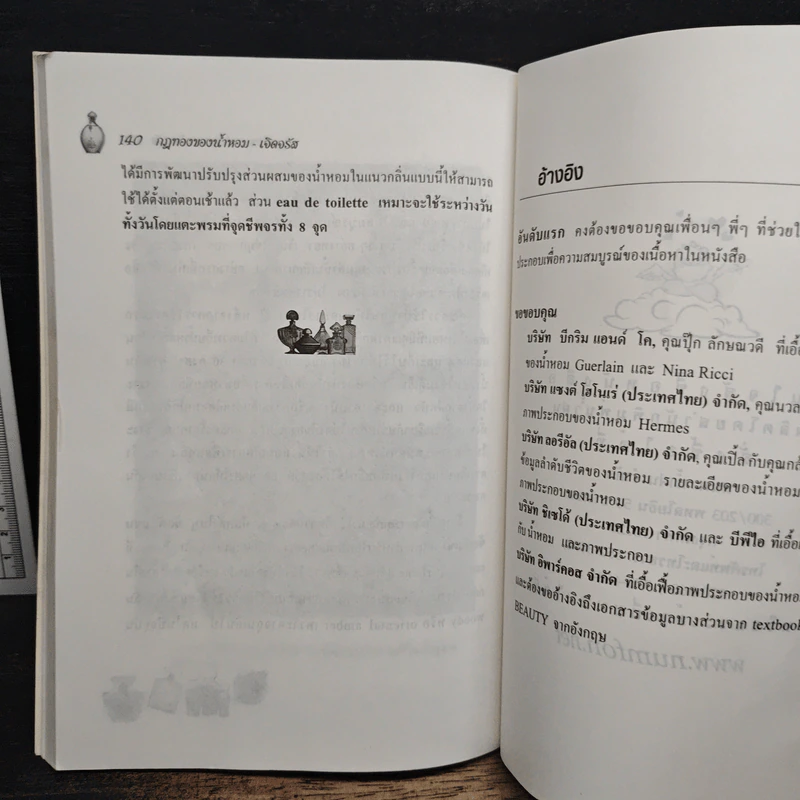 140 กฎทองของน้ำหอม - เจิดจรัส
ได้มีการพัฒนาปรับปรุงส่วนผสมของน้ำหอมในแนวกลิ่นแบบนี้ให้สามารถ
ใช้ได้ตั้งแต่ตอนเช้าแล้ว ส่วน eau de toilette เหมาะจะใช้ระหว่างวัน
ทั้งวันโดยแตะพรมที่จุดชีพจรทั้ง 8 จุด
อ้างอิง
อันดับแรก คงต้องขอขอบคุณเพื่อนๆ พี่ๆ ที่ช่วย
ประกอบเพื่อความสมบูรณ์ของเนื้อหาในหนังสือ
ขอขอบคุณ
บริษัท บีกริม แอนด์ โค, คุณปุ๊ก ลักษณวดี ที่เอื้อ
ของน้ำหอม Guerlain และ Nina Ricci
บริษัท แซงต์ โฮโนเร่ (ประเทศไทย) จำกัด, คุณนวล
ภาพประกอบของน้ำหอม Hermes
บริษัท ลอรีอัล (ประเทศไทย) จำกัด, คุณเปิ้ล กับคุณ
ข้อมูลลำดับชีวิตของน้ำหอม รายละเอียดของน้ำหอม
ภาพประกอบของน้ำหอม
บริษัท ชิเซโด้ (ประเทศไทย) จำกัด และ บีพีไอ ที่เอื้อ
กับน้ำหอม และภาพประกอบ
บริษัท อิพาร์คอส จำกัด ที่เอื้อเฟื้อภาพประกอบของน้ำหอม
และต้องขออ้างอิงถึงเอกสารข้อมูลบางส่วนจาก textbook
BEAUTY จากอังกฤษ